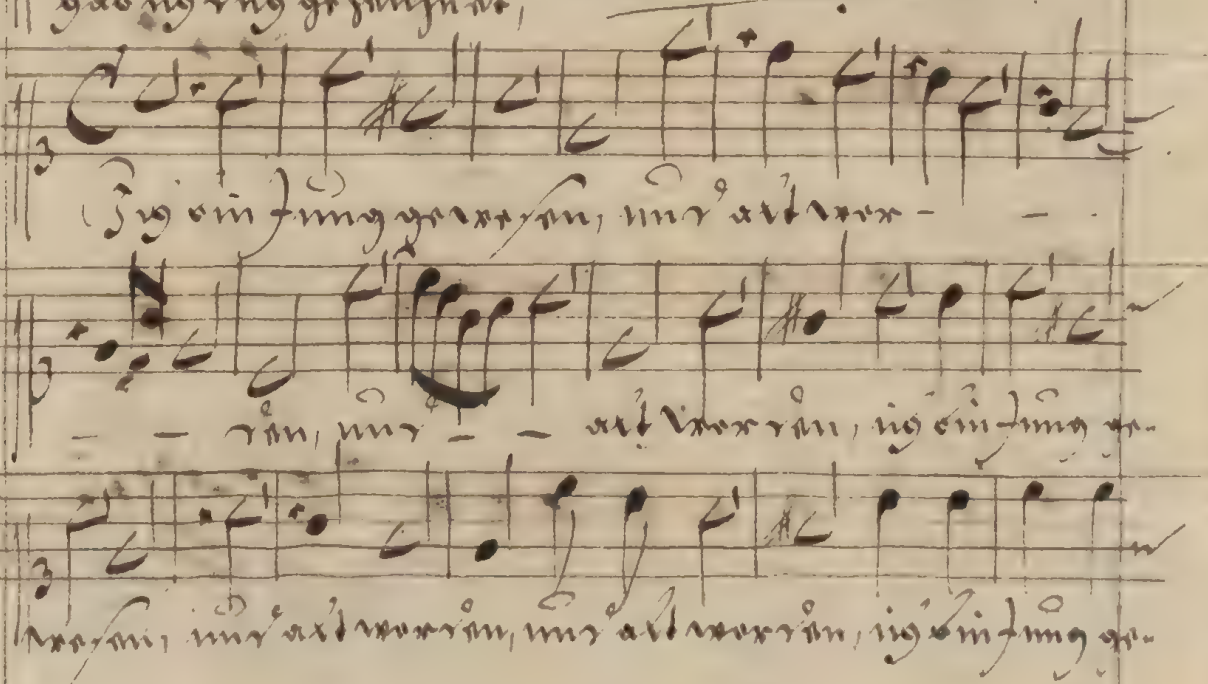 Ich bin Jung gewesen, und alt wer - -
- - den, und - - alt werden, ich bin Jung ge-
wesen, und alt werden, und alt werden, ich bin Jung ge-